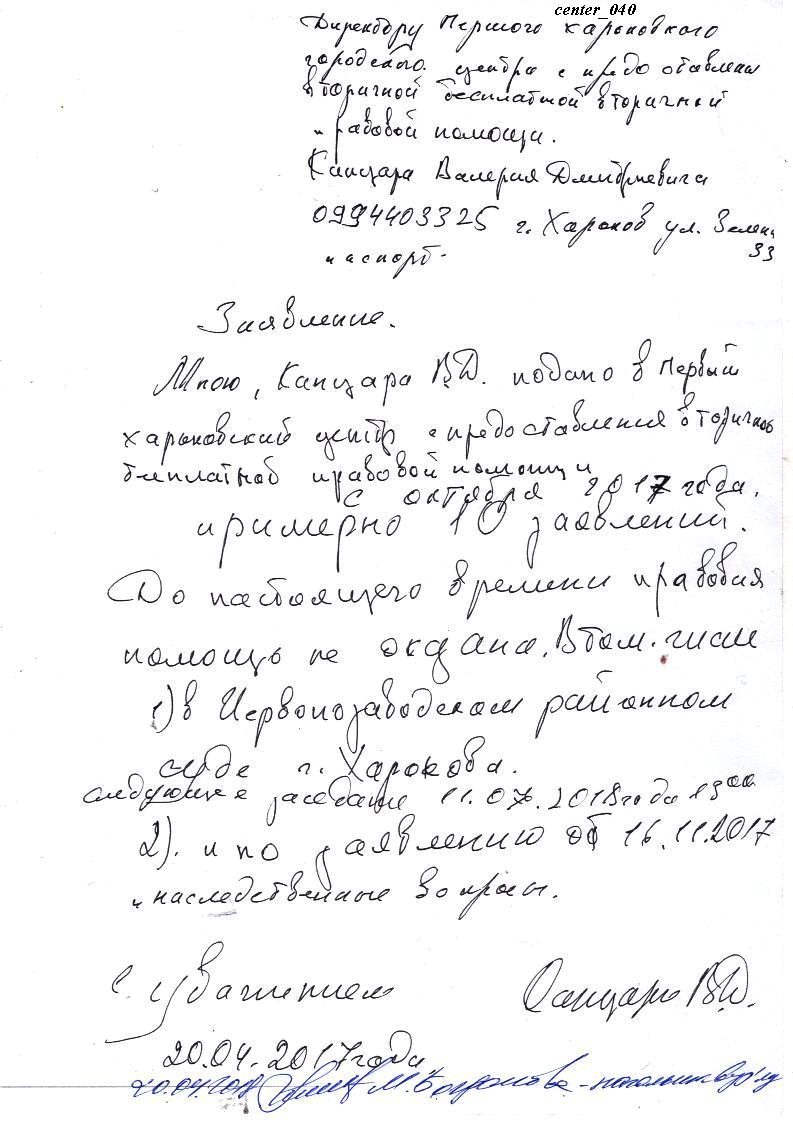 center_040
Директору Першого харьковкого
городского центра с предоставлени
вторичной бесплатной вторичный
правовой помощи.
Канцара Валерия Дмитриевича
0994403325 г. Харьков ул. Зелен
33
паспорт.
Заявление.
Мною, Канцара В.Д. подано в первый
харьковский центр с предоставления вторичной
бесплатной правовой помощи
с октября 2017 года.
примерно 10 заявлений.
До настоящего времени правовая
помощь не окдана. В том. числе
1) в Червонозаводском районном
суде г. Харькова.
следующее заседание 11.07.2018 года 13 00
2). и по заявлению от 16.11.2017
наследственные вопросы.
С уважением Канцара В.Д.
20.04.2017 года
20.04.2018